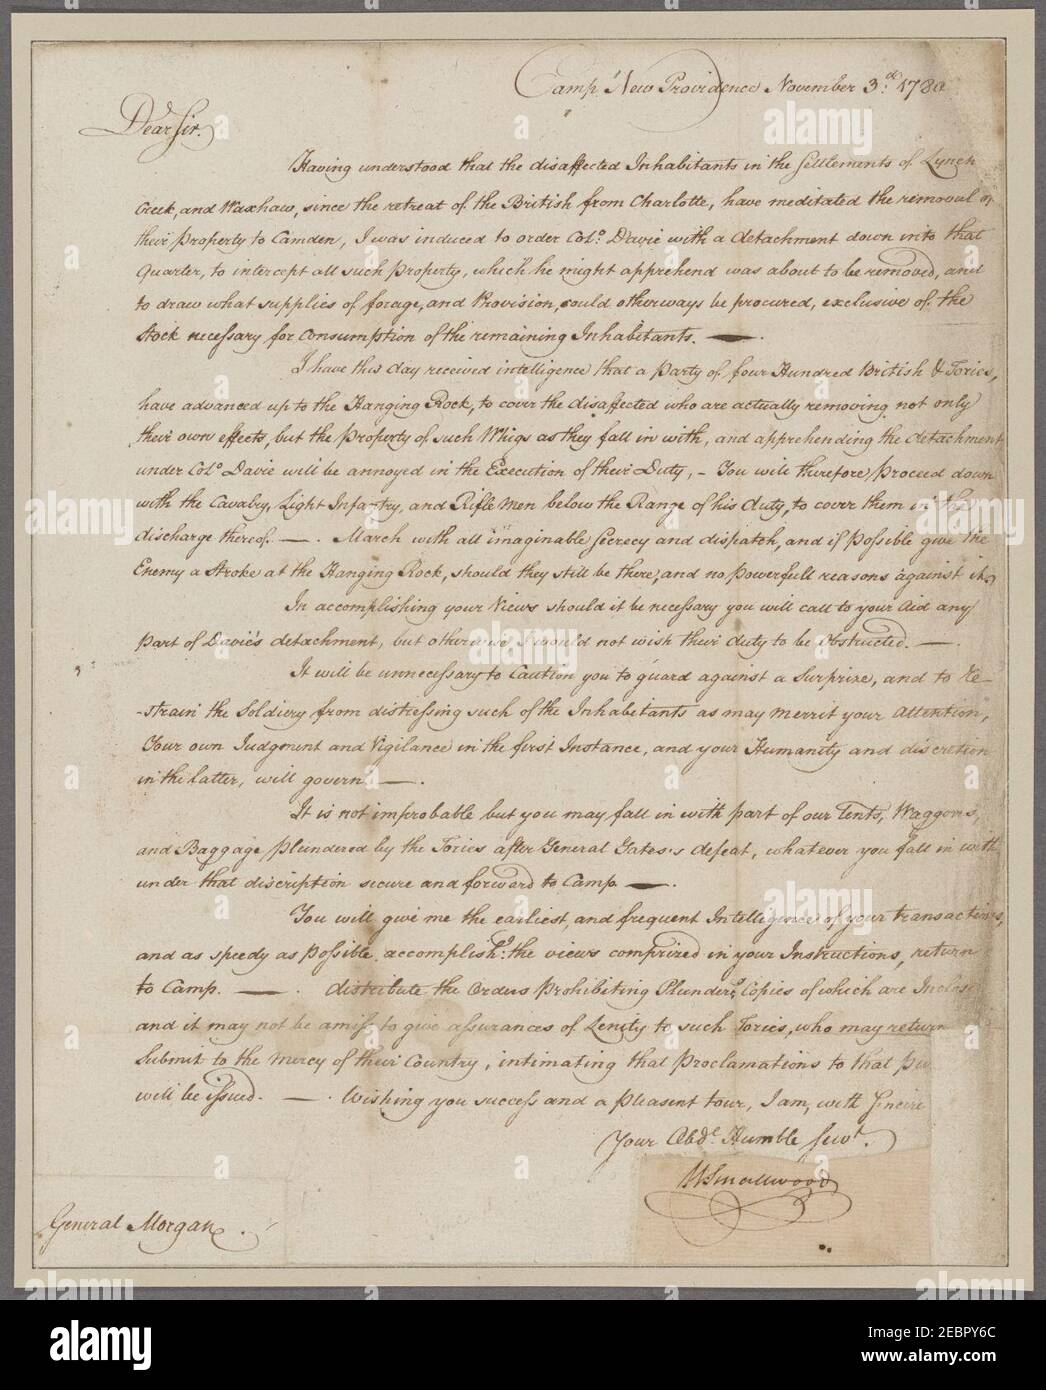 Camp New Providence November 3.d 1780
Dear Sir.
Having understood that the disaffected Inhabitants in the Settlements of Lynch
Creek, and Waxhaw, since the retreat of the British from Charlotte, have meditated the removal of
their Property to Camden, I was induced to order Colo. Davie with a detachment down into that
Quarter, to intercept all such Property, which he might apprehend was about to be removed, and
to draw what supplies of forage, and Provision, could otherways be procured, exclusive of the
Stock necessary for Consumption of the remaining Inhabitants. — .
I have this day received intelligence that a party of four Hundred British & Tories,
have advanced up to the Hanging Rock, to cover the disaffected who are actually removing not only
their own effects, but the Property of such Whigs as they fall in with, and apprehending the detachment
under Colo. Davie will be annoyed in the Execution of their Duty, - You will therefore proceed down
with the Cavalry, Light Infantry, and Rifle Men below the Range of his duty, to cover them in the
discharge thereof. — . March with all imaginable Secrecy and dispatch, and if possible give the
Enemy a Stroke at the Hanging Rock, should they still be there, and no powerfull reasons against it.
In accomplishing your Views should it be necessary you will call to your Aid any
part of Davie's detachment, but otherwise I would not wish their duty to be obstructed. — .
It will be unnecessary to Caution you to guard against a Surprize, and to Re-
-strain the Soldiery from distressing such of the Inhabitants as may merrit your Attention,
Your own Judgment and Vigilance in the first Instance, and your Humanity and discretion
in the latter, will govern. — .
It is not improbable but you may fall in with part of our Tents, Waggons,
and Baggage plundered by the Tories after General Gates's defeat, whatever you fall in with
under that discription secure and forward to Camp — .
You will give me the earliest, and frequent Intelligence of your transactions,
and as speedy as possible accomplish'g the views comprized in your Instructions, return
to Camp. — . distribute the Orders Prohibiting Plunder'g Copies of which are Inclos
and it may not be amiss to give assurances of Lenity to such Tories, who may return
Submit to the Mercy of their Country, intimating that Proclamations to that pu
will be issued. — . Wishing you success and a pleasent tour, I am, with Sincere
Your Obde. Humble Servt.
WSmallwood
General Morgan .
alamy
Image ID: 2EBPY6C
www.alamy.com